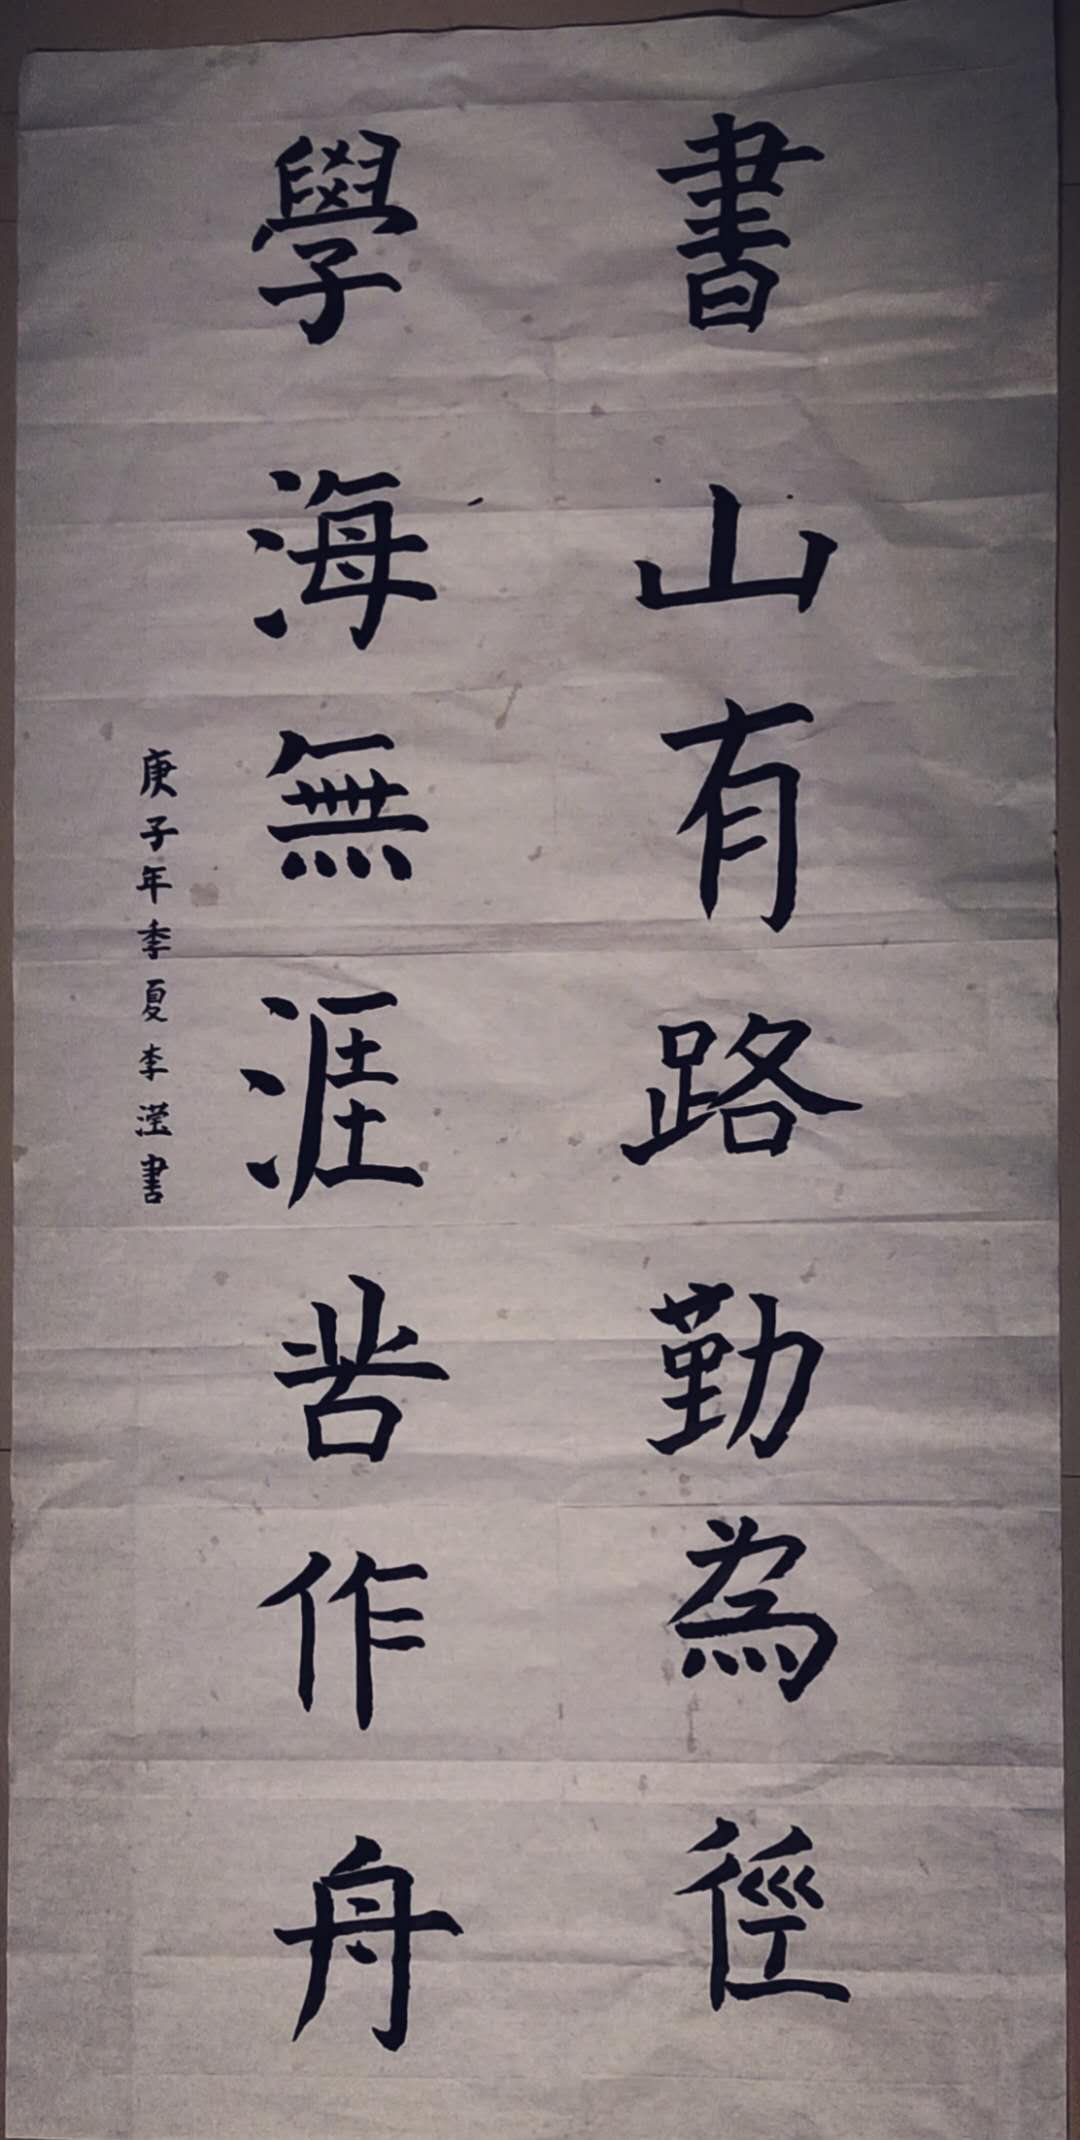 書山有路勤為徑
學海無涯苦作舟
庚子年季夏李滢書